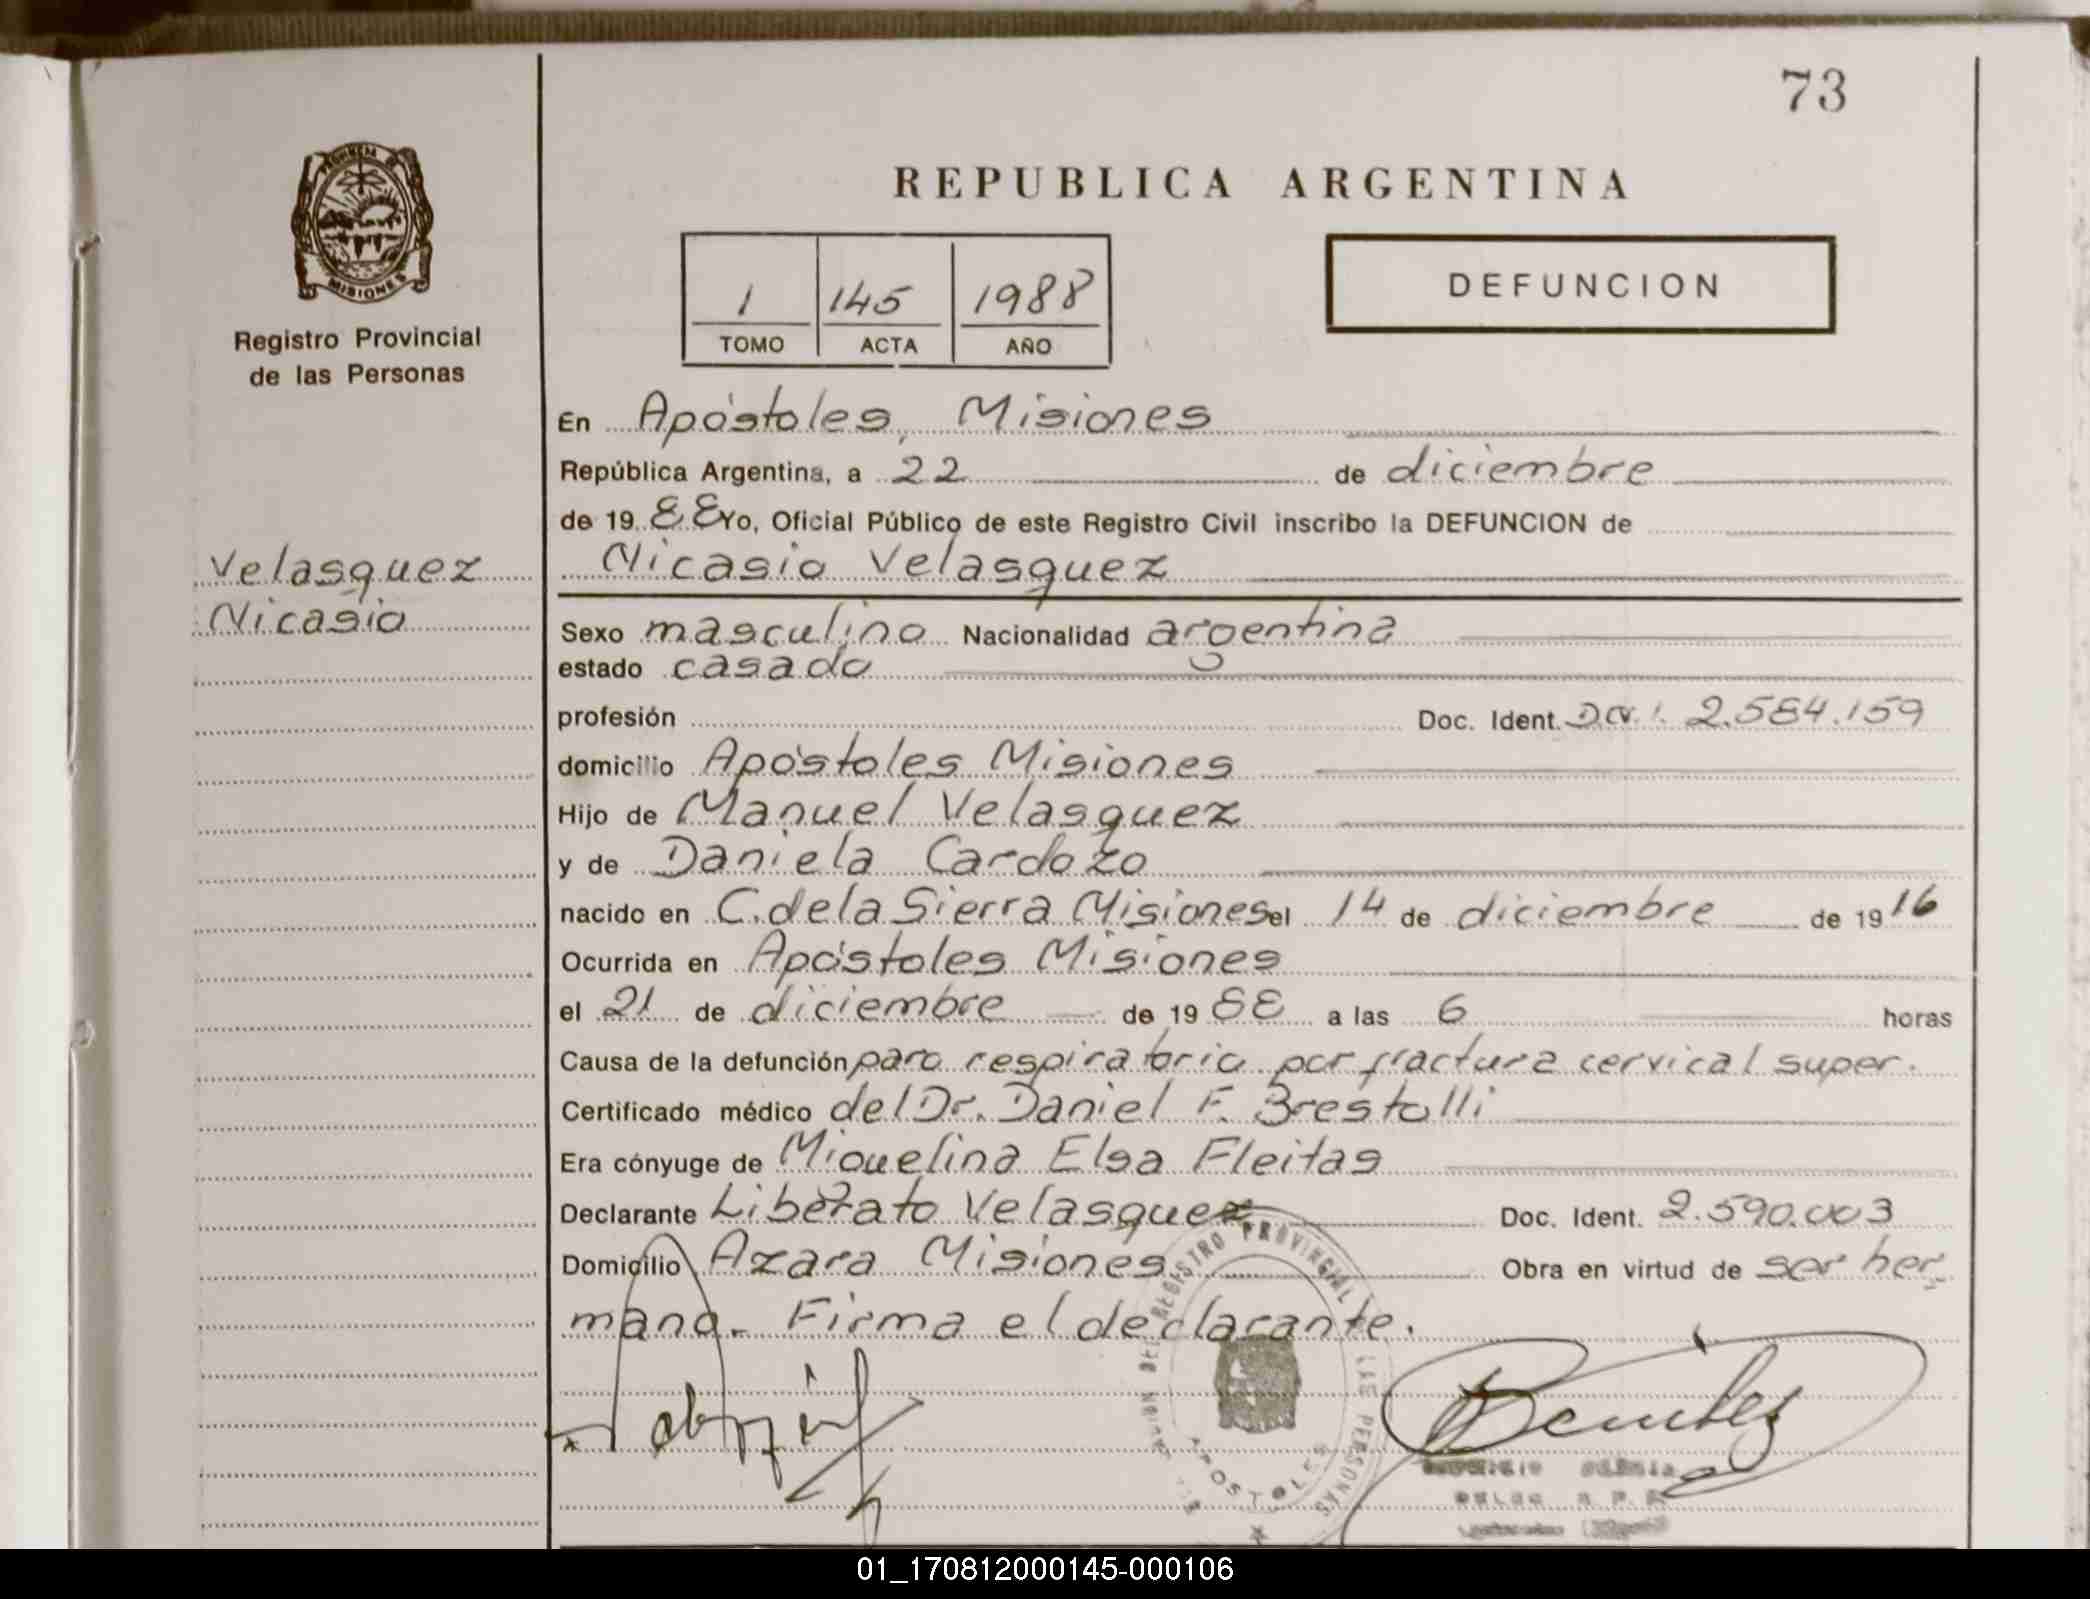 73
PROVINCIA DE
MISIONES
Registro Provincial
de las Personas
REPUBLICA ARGENTINA
1 145 1988
TOMO ACTA AÑO
DEFUNCION
Velasquez
Nicasio
En Apóstoles, Misiones
República Argentina, a 22 de diciembre
de 19 88 Yo, Oficial Público de este Registro Civil inscribo la DEFUNCION de
Nicasio Velasquez
Sexo masculino Nacionalidad argentina
estado casado
profesión Doc. Ident. D.N.I. 2.584.159
domicilio Apóstoles Misiones
Hijo de Manuel Velasquez
y de Daniela Cardozo
nacido en C. de la Sierra Misiones el 14 de diciembre de 19 16
Ocurrida en Apóstoles Misiones
el 21 de diciembre de 19 88 a las 6 horas
Causa de la defunción paro respiratorio por fractura cervical super.
Certificado médico del Dr. Daniel F. Brestolli
Era cónyuge de Miquelina Elsa Fleitas
Declarante Liberato Velasquez Doc. Ident. 2.590.003
Domicilio Azara Misiones Obra en virtud de ser her,
mano. Firma el declarante.
REGISTRO PROVINCIAL
LAS PERSONAS
APOSTOLES
Benitez
01_170812000145-000106